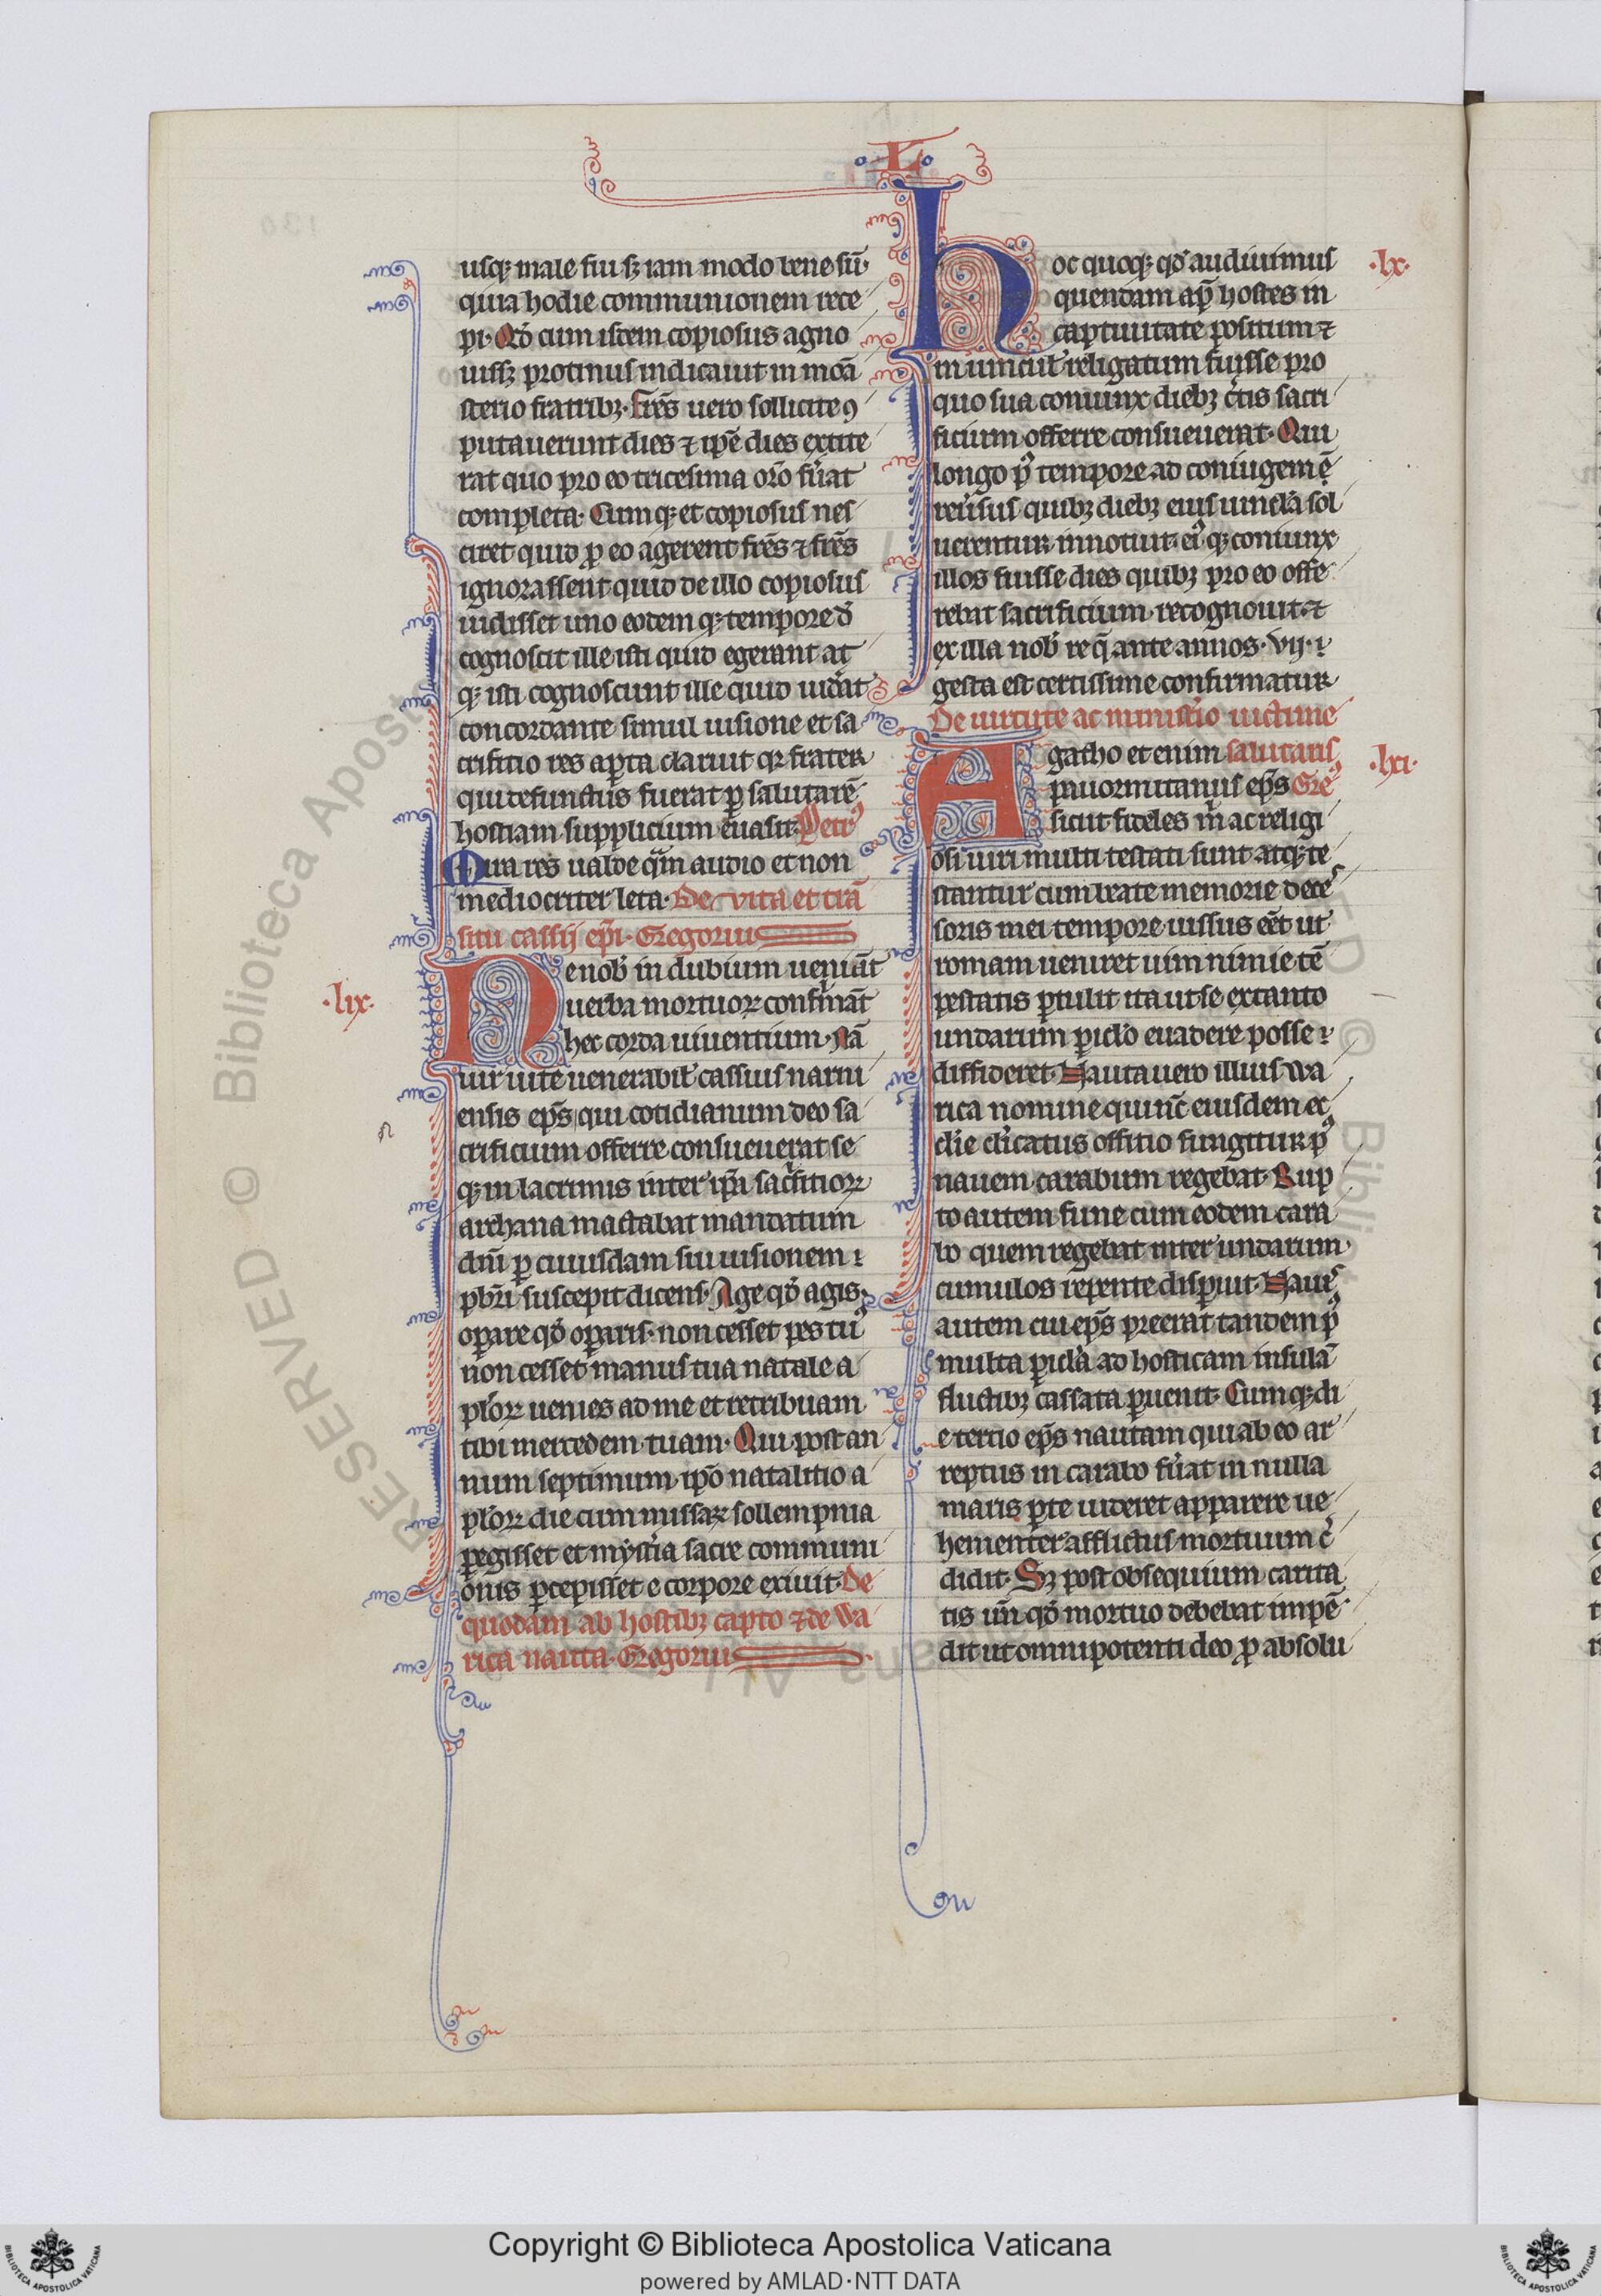 L
usq; male fui sȝ iam modo bene sū·
quia hodie communionem rece
pi· Qd̄ cum istem copiosus agno
uissȝ protinus indicauit in monā
sterio fratribȝ· Frēs uero sollicite ꝯ
putauerunt dies ⁊ ip̄e dies extite
rat quo pro eo tricesima or̄o fuˀat
completa· Cumq; et copiosus nes
ciret quid ꝓ eo agerent frēs ⁊ frēs
ignorassent quid de illo copiosus
uidisset uno eodem q; tempore d̄
cognoscit ille isti quid egerant at
q; isti cognoscunt ille quid uidˀat
concordante simul uisione et sa
crifitio res aꝑta claruit qꝛ frater
qui defunctus fuerat ꝑ salutarē
hostiam supplicium euasit· Petrꝰ
Mira res ualde q̄m audio et non
mediocriter leta· De vita et trā
situ cassij ep̄i· Gregoriu
Ne nob̄ in dubium ueniāt
uerba mortuoꝝ confirmāt
hec corda uiuentium· Nā
·lix·
uir uite uenerabil̄ cassius narni
ensis ep̄s qui cotidianum deo sa
crificium offerre consueuerat se
q; in lacrimis inter ip̄a sac̄fitioꝝ
archana mactabat mandatum
dn̄i ꝑ cuiusdam sui uisionem ꝛ
pb̄ri suscepit dicens· Age qd̄ agis·
oꝑare qd̄ oꝑaris· non cesset pes tuꝰ
non cesset manus tua natale a
pl̄oꝝ uenies ad me et retribuam
tibi mercedem tuam· Qui post an
num septimum ip̄o natalitio a
pl̄oꝝ die cum missaꝝ sollempnia
ꝑegisset et myst̄ia sacre communi
onis ꝑcepisset e corpore exiuit· De
quodam ab hostibȝ capto ⁊ de va
rica nauta· Gregoriu
Hoc quoq; qd̄ audiuimus
·lx·
quendam ap̄ hostes in
captiuitate positum ⁊
in uincul̄ religatum fuisse pro
quo sua coniunx diebȝ c̄tis sacri
ficium offerre consueuerat· Qui
longo pꝰ tempore ad coniugem ē
reuˀsus quibȝ diebȝ eius uincl̄a sol
uerentur innotuit· ei q; coniunx
illos fuisse dies quibȝ pro eo offe
rebat sacrificium recognouit· ⁊
ex illa nob̄ re q̄ ante annos· vij· ꝛ
gesta est certissime confirmatur
De uirtute ac minist̄io uictime
Agatho et enim salutaris
·lxi·
panormitanus ep̄s Greꝰ
sicut fideles m̄ ac religi
osi uiri multi testati sunt atq; te
stantur cum beate memorie deces
soris mei tempore iussus eēt ut
romam ueniret uim nimie tē
pestatis ꝑtulit ita ut se ex tanto
undarum ꝑicl̄o euadere posse ꝛ
diffideret· Nauta uero illius va
rica nomine qui nūc eiusdem ec
cl̄ie cl̄icatus offitio fungitur pꝰ
nauem carabum regebat· Rup
to autem fune cum eodem cara
bo quem regebat inter undarum
cumulos repente disꝑuit· Nauis
autem cui ep̄s preerat tandem pꝰ
multa ꝑicl̄a ad hosticam insulā
fluctibȝ cassata ꝑuenit· Cumq; di
e tertio ep̄s nautam qui ab eo ar
reptus in carabo fuˀat in nulla
maris ꝑte uideret apparere ue
hementer afflictus mortuum c̄
didit· Sȝ post obsequium carita
tis un̄ qd̄ mortuo debebat impē
dit ut omnipotenti deo ꝓ absolu
RESERVED © Biblioteca Apost
Bibli
Copyright © Biblioteca Apostolica Vaticana
powered by AMLAD·NTT DATA
BIBLIOTECA APOSTOLICA VATICANA
BIBLIOTECA APOSTOLICA VATICANA